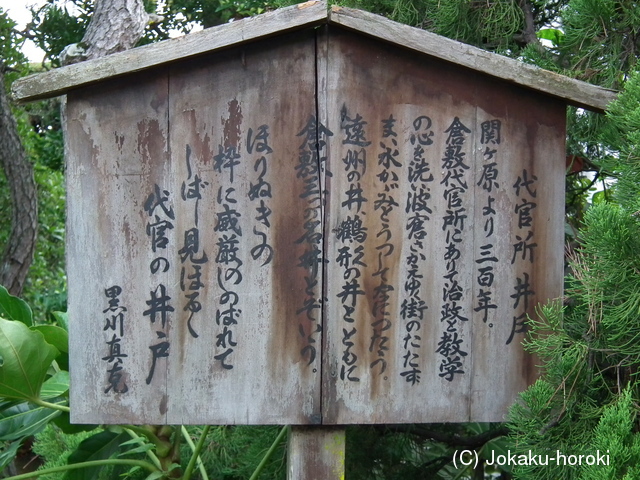 代官所井戸
関ヶ原より三百年。
倉敷代官所にあり治政と教学
の心を洗い波磨きかえゆく街のたたず
まい水かがみをうつして
遠州の井 鶴形の井とともに
倉敷三つの名井とぞいう。
ほりぬきの
枠に威厳のしのばれて
しばし見ほるく
代官の井戸
黒川真克
(C) Jokaku-horoki